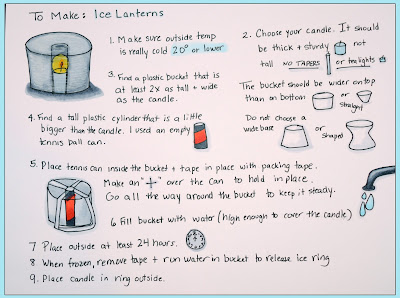 To Make: Ice Lanterns
1. Make sure outside temp
is really cold 20° or lower
2. Choose your candle. It should
be thick + sturdy not
tall NO TAPERS or tea lights
3. Find a plastic bucket that is
at least 2x as tall + wide
as the candle.
The bucket should be wider on top
than on bottom or straight
4. Find a tall plastic cylinder that is a little
bigger than the candle. I used an empty
tennis ball can.
Do not choose a
wide base or shaped
5. Place tennis can inside the bucket + tape in place with packing tape.
Make an "+" over the can to hold in place.
Go all the way around the bucket to keep it steady.
6 Fill bucket with water (high enough to cover the candle)
7 Place outside at least 24 hours.
8. When frozen, remove tape + run water in bucket to release ice ring
9. Place candle in ring outside.